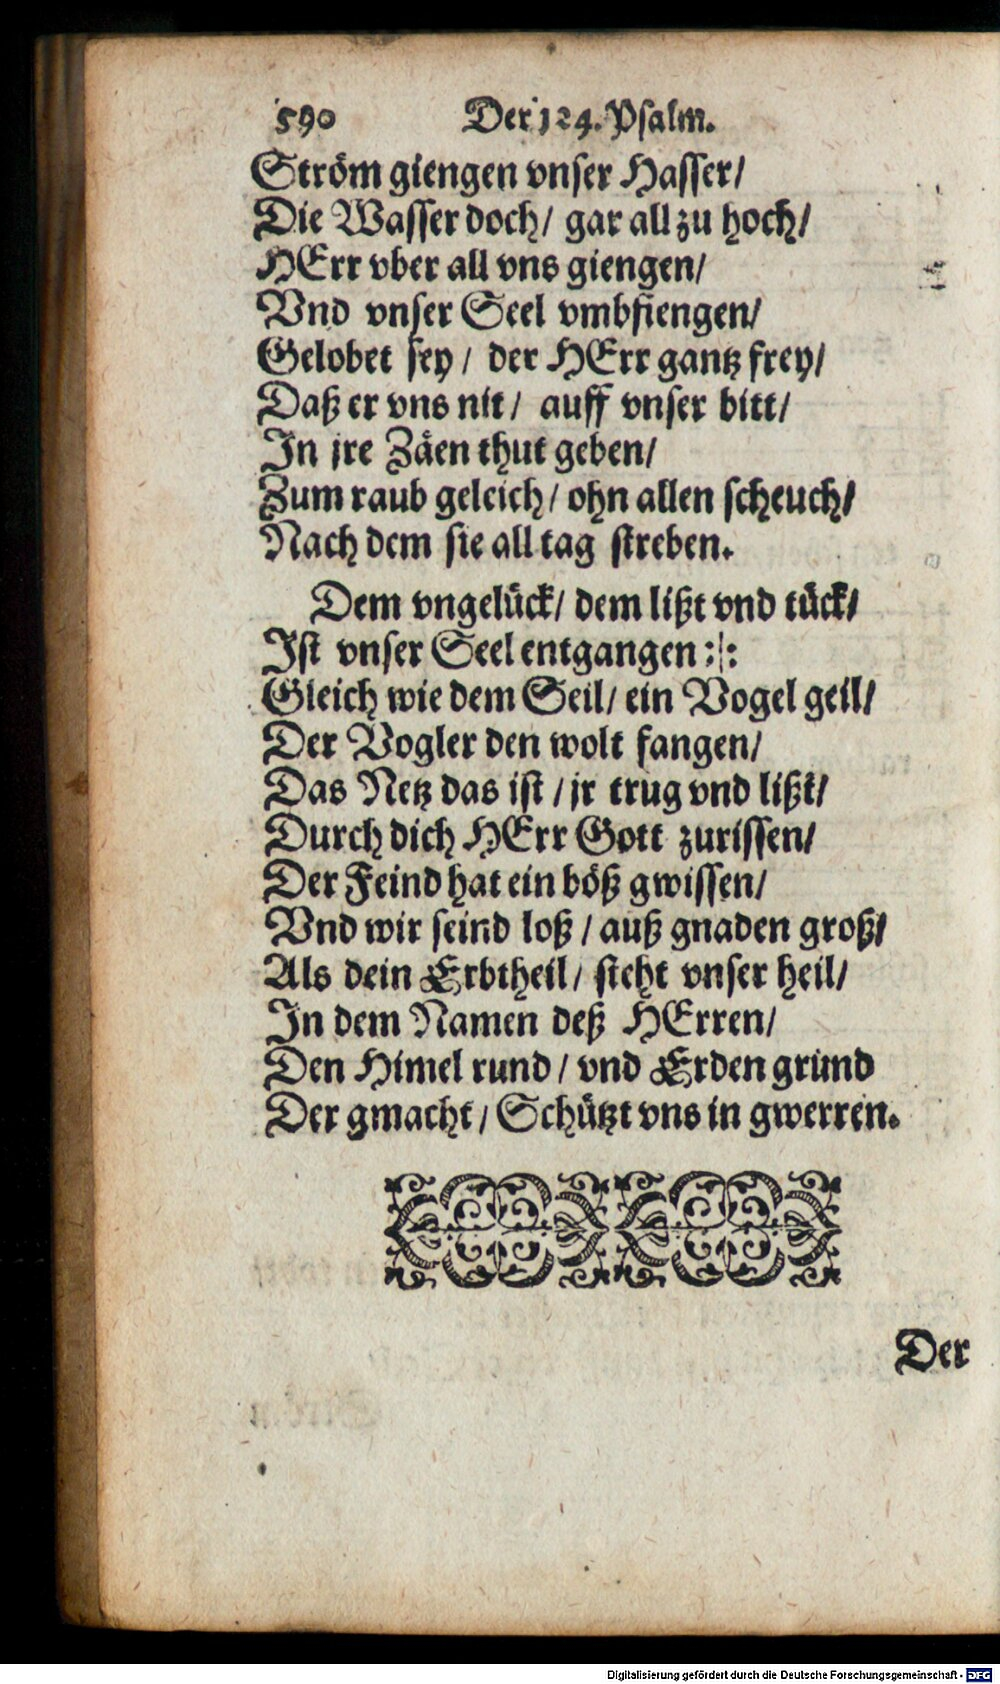 590 Der 124. Psalm.
Ström giengen vnser Hasser/
Die Wasser doch/ gar all zu hoch/
HErr vber all vns giengen/
Vnd vnser Seel vmbfiengen/
Gelobet sey / der HErr gantz frey/
Daß er vns nit / auff vnser bitt/
In jre Zäen thut geben/
Zum raub geleich / ohn allen scheuch/
Nach dem sie all tag streben.
Dem vngelück/ dem lißt vnd tück/
Ist vnser Seel entgangen :|:
Gleich wie dem Seil/ ein Vogel geil/
Der Vogler den wolt fangen/
Das Netz das ist / jr trug vnd lißt/
Durch dich HErr Gott zurissen/
Der Feind hat ein böß gwissen/
Vnd wir seind loß / auß gnaden groß/
Als dein Erbtheil/ steht vnser heil/
In dem Namen deß HErren/
Den Himel rund / vnd Erden grund
Der gmacht / Schützt vns in gwerren.
Der
Digitalisierung gefördert durch die Deutsche Forschungsgemeinschaft - DFG